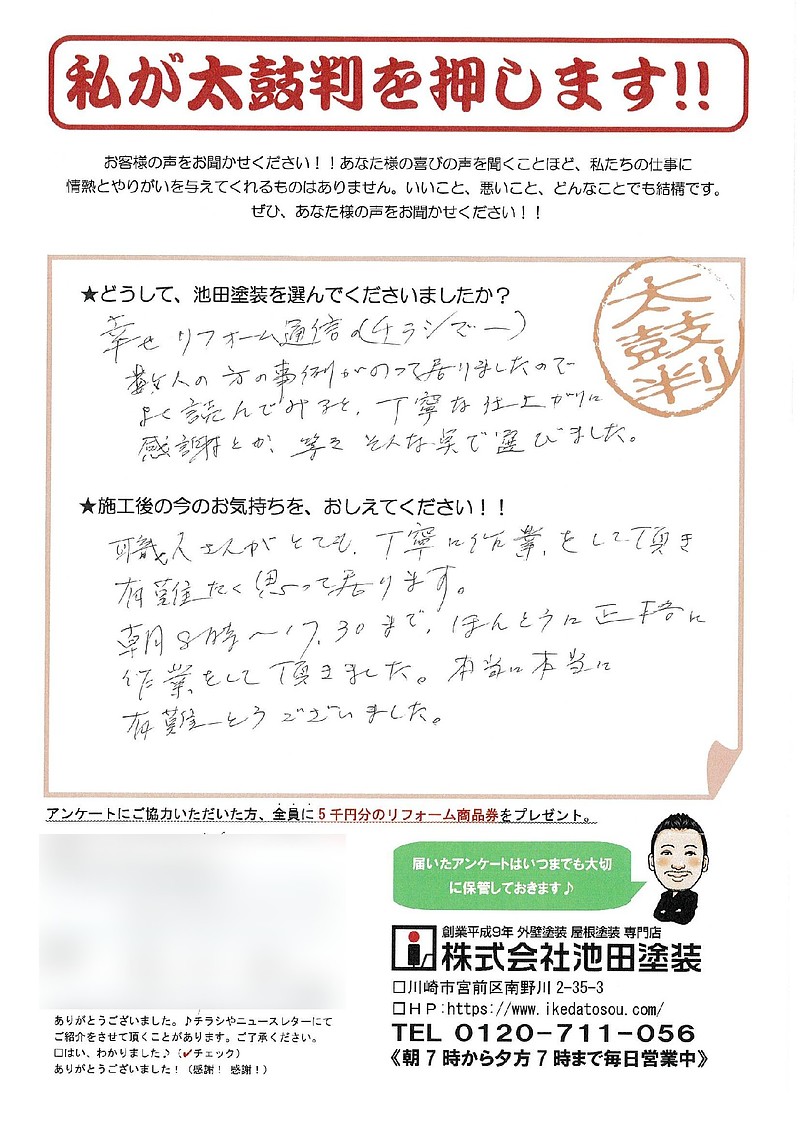 私が太鼓判を押します!!
お客様の声をお聞かせください！！あなた様の喜びの声を聞くことほど、私たちの仕事に
情熱とやりがいを与えてくれるものはありません。いいこと、悪いこと、どんなことでも結構です。
ぜひ、あなた様の声をお聞かせください！！
太鼓判
★どうして、池田塗装を選んでくださいましたか？
幸せリフォーム通信の(チラシでー)
数人の方の事例がのって居りましたので
よく読んでみると、丁寧な仕上がりに
感謝とか、等々そんな実で選びました。
★施工後の今のお気持ちを、おしえてください！！
職人さんがとても、丁寧に作業をして頂き
有難たく思って居ります。
朝8時〜17.30まで、ほんとうに正確に
作業をして頂きました。本当に本当に
有難とうございました。
アンケートにご協力いただいた方、全員に５千円分のリフォーム商品券をプレゼント。
届いたアンケートはいつまでも大切
に保管しておきます♪
創業平成9年 外壁塗装 屋根塗装 専門店
株式会社池田塗装
□川崎市宮前区南野川2-35-3
□ＨＰ:https://www.ikedatosou.com/
TEL 0120-711-056
《朝７時から夕方７時まで毎日営業中》
ありがとうございました。♪チラシやニュースレターにて
ご紹介をさせて頂くことがあります。ご了承ください。
□はい、わかりました♪（✔チェック）
ありがとうございました！（感謝！感謝！）